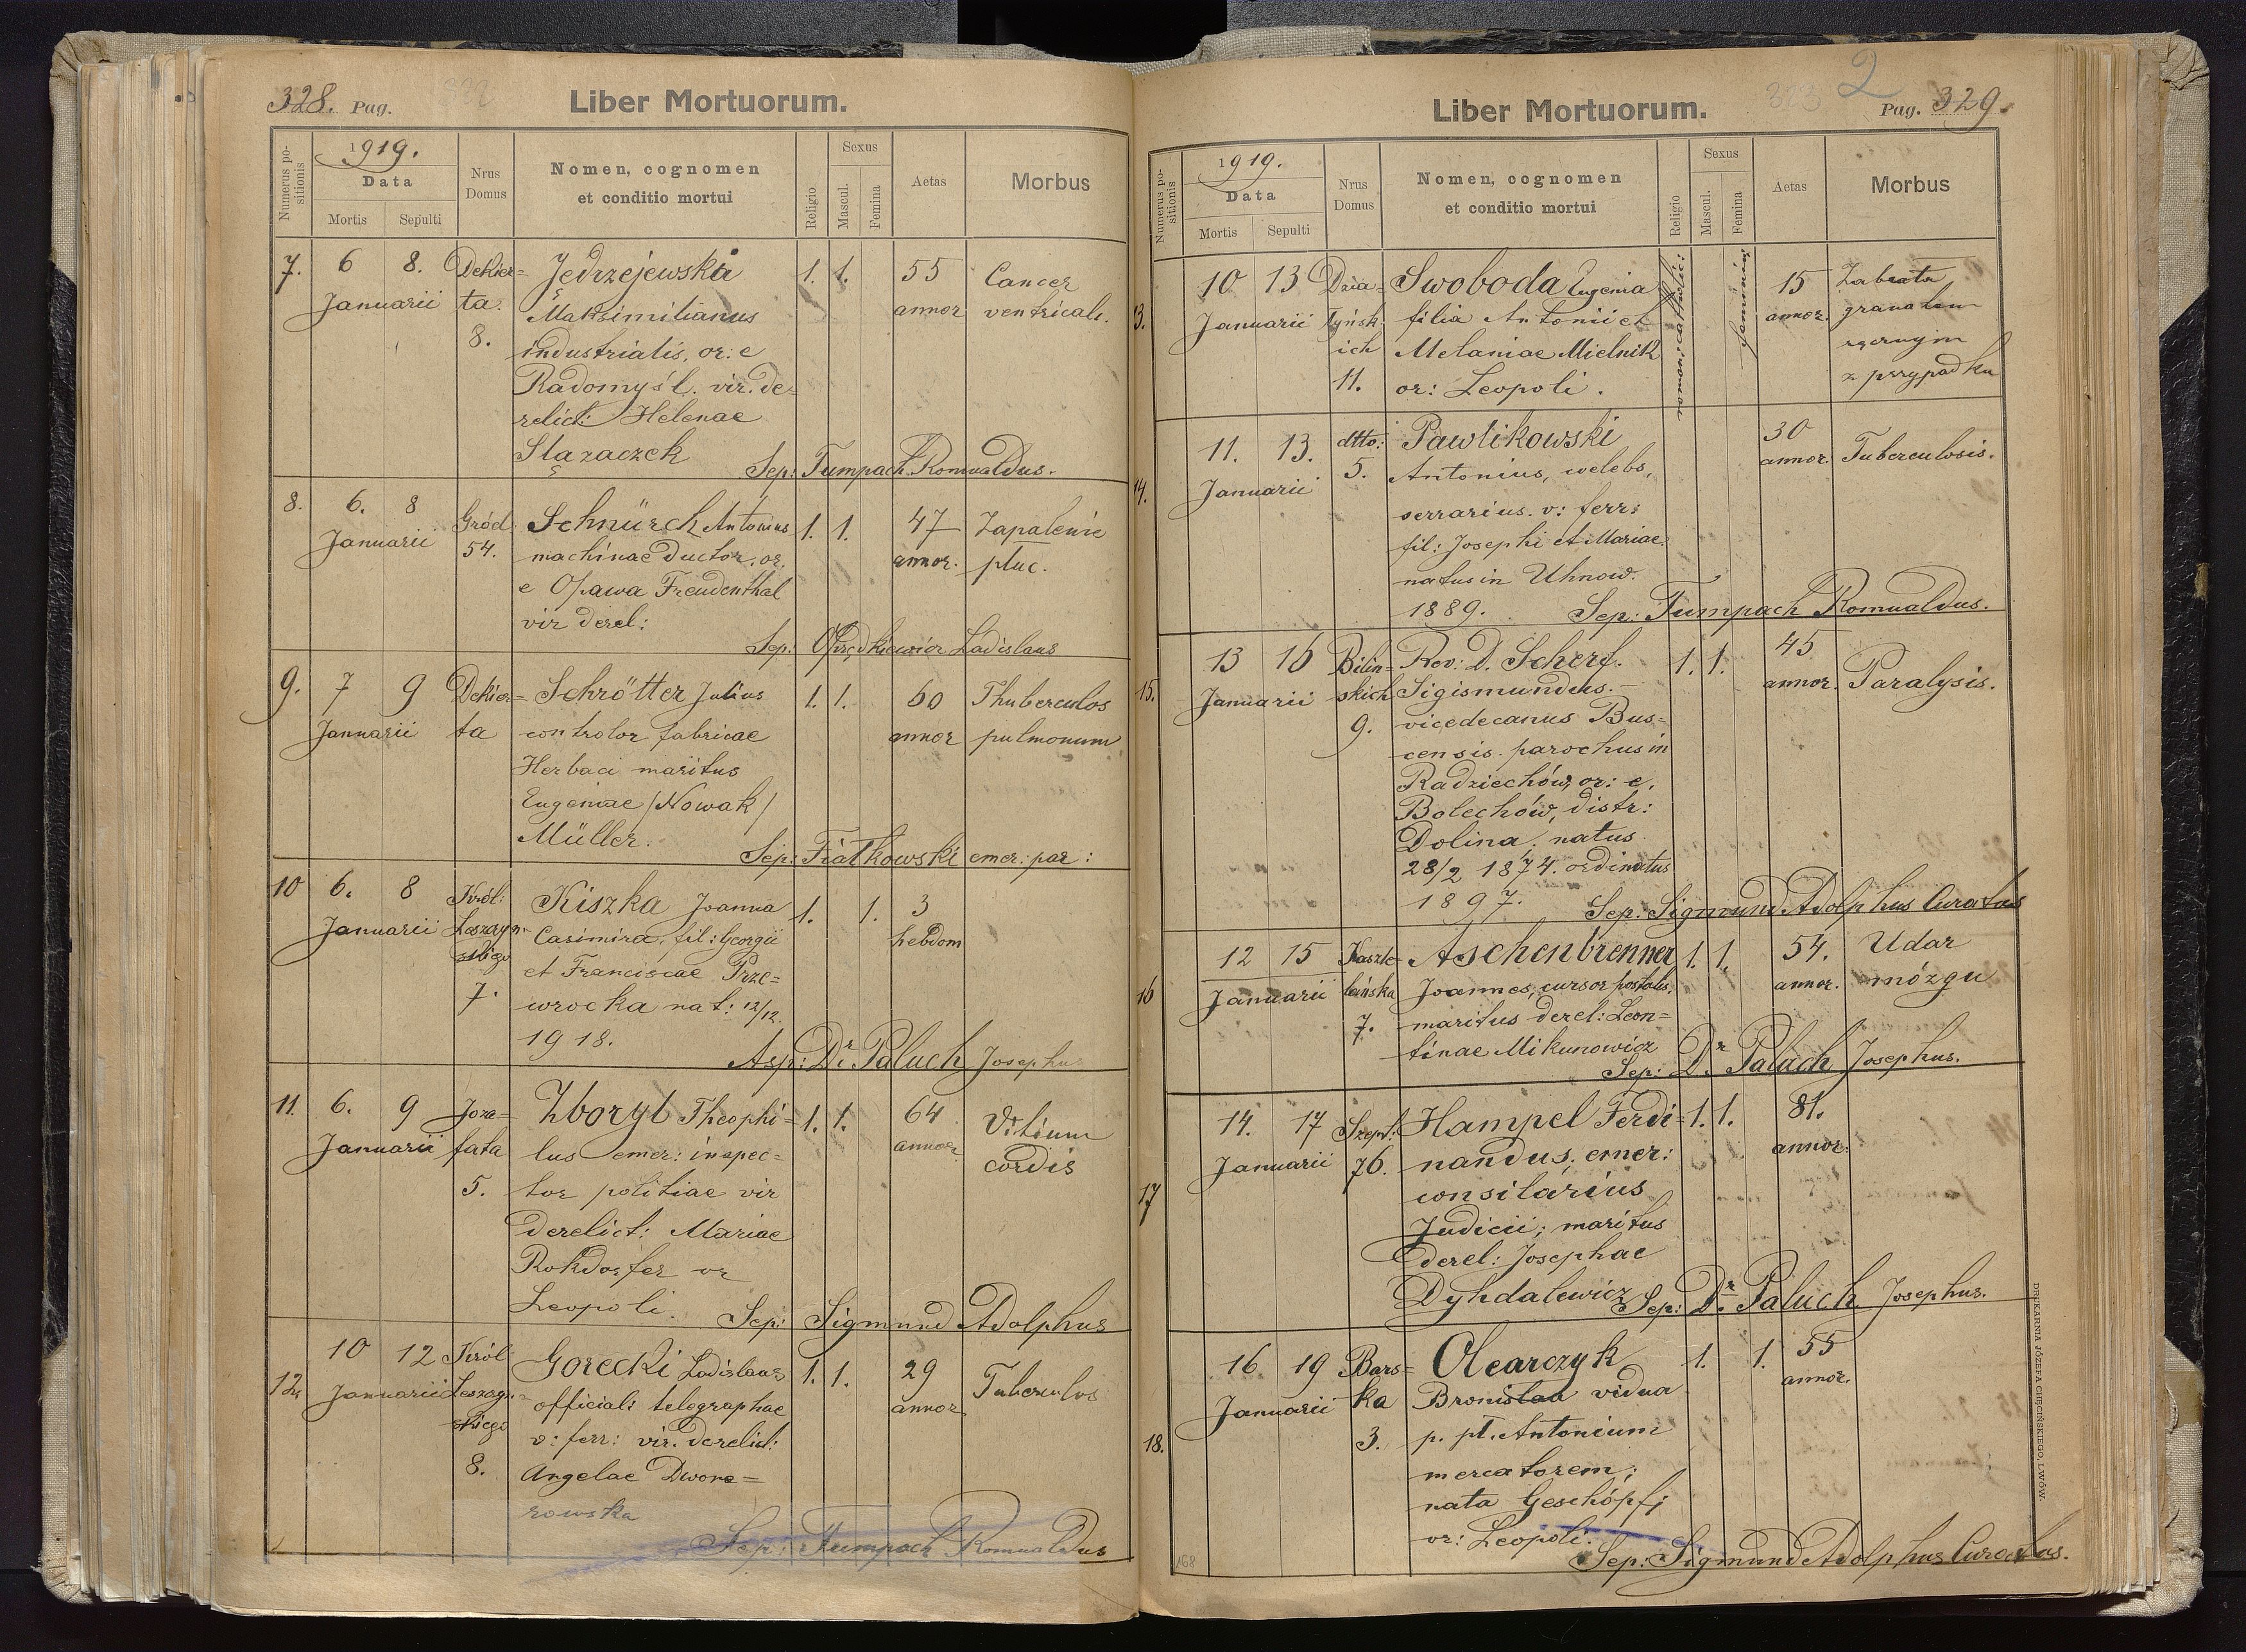 328. Pag.
Liber Mortuorum.
Numerus positionis
1919.
Data
Mortis
Sepulti
Nrus
Domus
Nomen, cognomen
et conditio mortui
Religio
Sexus
Mascul.
Femina
Aetas
Morbus
7. 6 8. Dekier=
Januarii ta.
8.
Jędrzejewski
Maksimilianus
industrialis, or: e
Radomyśl. vir. de=
relict: Helenae
Slązaczek
1. 1. 55
annor
Cancer
ventricali.
Sep: Tumpach Romualdus.
8. 6. 8 Gród.
Januarii 54.
Schnürch Antonius
machinae ductor, or.
e Opawa Freudenthal
vir derel:
1. 1. 47
annor.
Zapalenie
płuc.
Sep: Ladislaus
9. 7 9 Dekier=
Januarii ta
Schrötter Julius
controlor fabricae
Herbaci maritus
Eugeniae /Nowak/
Müller.
1. 1. 60
annor
Thuberculos
pulmonum
Sep: Fiałkowski emer: par:
10 6. 8 Król:
Januarii Leszczyń-
skiego
7.
Kiszka Joanna
Casimira, fil: Georgii
et Franciscae Prze=
wrocka nat: 12/12.
1918.
1. 1. 3
hebdom
Asp: Dr. Paluch Josephus
11. 6. 9 Joza=
Januarii fata
5.
Zboryl Theophi=
lus emer: inspec=
tor politiae vir
derelict: Mariae
Rokdorfer or
Leopoli.
1. 1. 64
annor
Vitium
cordis
Sep: Sigmund Adolphus
12. 10 12 Król
Januarii Leszczyń=
skiego
8.
Gorecki Ladislaus
officiali telegraphae
v: ferr: vir. derelict:
Angelae Dwore=
rowska
1. 1. 29
annor
Tuberculos
Sep: Tumpach Romualdus
2
Liber Mortuorum.
Pag. 329.
Numerus positionis
1919.
Data
Mortis
Sepulti
Nrus
Domus
Nomen, cognomen
et conditio mortui
Religio
Sexus
Mascul.
Femina
Aetas
Morbus
13. 10 13 Dzia=
Januarii łyńsk
ich
11.
Swoboda Eugenia
filia Antonii et
Melaniae Mielnik
or: Leopoli.
roman: catholic:
feminin
15
annor.
Zabita
granatem
ręcznym
z przypadku
14. 11. 13. dtto:
Januarii 5.
Pawlikowski
Antonius, welebs,
serrarius. v: ferr:
fil: Josephi et Mariae.
natus in Uhnow.
1889.
30
annor.
Tuberculosis.
Sep: Tumpach Romualdus.
15. 13 16 Bilin=
Januarii skich
9.
Rev: D. Scherf.
Sigismundus.
vicedecanus Bus=
censis. parochus in
Radziechów, or: e.
Bolechów, distr:
Dolina, natus
28/2 1874. ordinatus
1897.
1. 1. 45
annor.
Paralysis.
Sep: Sigmund Adolphus Curatus
16 12 15 Kaszte
Januarii lańska
7.
Aschenbrenner
Joannes, cursor postalis,
maritus derel: Leon=
tinae Mikunowicz
1. 1. 54.
annor.
Udar
mózgu
Sep: Dr. Paluch Josephus.
17 14. 17 Szept:
Januarii 76.
Hampel Ferdi=
nandus, emer:
consilarius
Judicii; maritus
derel: Josephae
Dyhdalewicz
1. 1. 81.
annor.
Sep: Dr. Paluch Josephus.
18. 16 19 Bars=
Januarii ka
3.
Olearczyk
Bronislaa vidua
p. pt. Antonium
mercatorem;
nata Geschöpf;
or: Leopoli.
1. 1. 55
annor.
Sep: Sigmund Adolphus Curatus.
168
DRUKARNIA JÓZEFA CHĘCIŃSKIEGO, LWÓW.